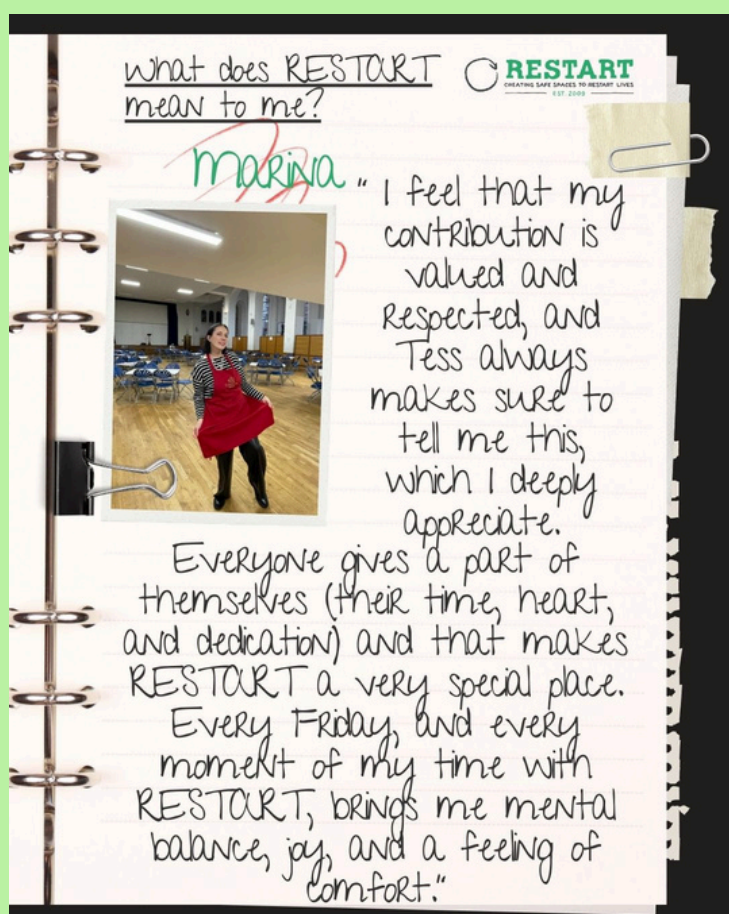 What does RESTART
mean to me?
RESTART
CREATING SAFE SPACES TO RESTART LIVES
EST. 2000
MARINA
" I feel that my
contribution is
valued and
respected, and
Tess always
makes sure to
tell me this,
which I deeply
appreciate.
Everyone gives a part of
themselves (their time, heart,
and dedication) and that makes
RESTART a very special place.
Every Friday, and every
moment of my time with
RESTART, brings me mental
balance, joy, and a feeling of
comfort."